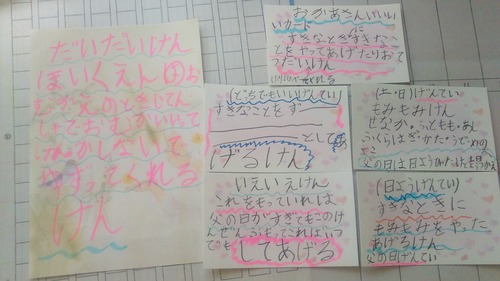 だいだいけん
(ほいくえん)お
むかえのときしてん
しておむかいやって
けんかしないで
ゆずってくれる
けん
おかあさんがいい
いカードに
すきなときすきなこ
とをやってあげたりおて
つだいけん
(どちでもいいげんてい)
すきなことをず
ーーーーーーーーー
ーーーーーとしてあ
げるけん
(土・日)げんてい
もみもみけん
せなか・
父の日は日ようか
いえいえけん
これをもっていれは
父の日がすぎてもこのけ
んぜんぶもってこればいつ
でもしてあげる
(日ようげんてい)
すきなときに
もみもみをやった
あげるけん
父の日げんてい